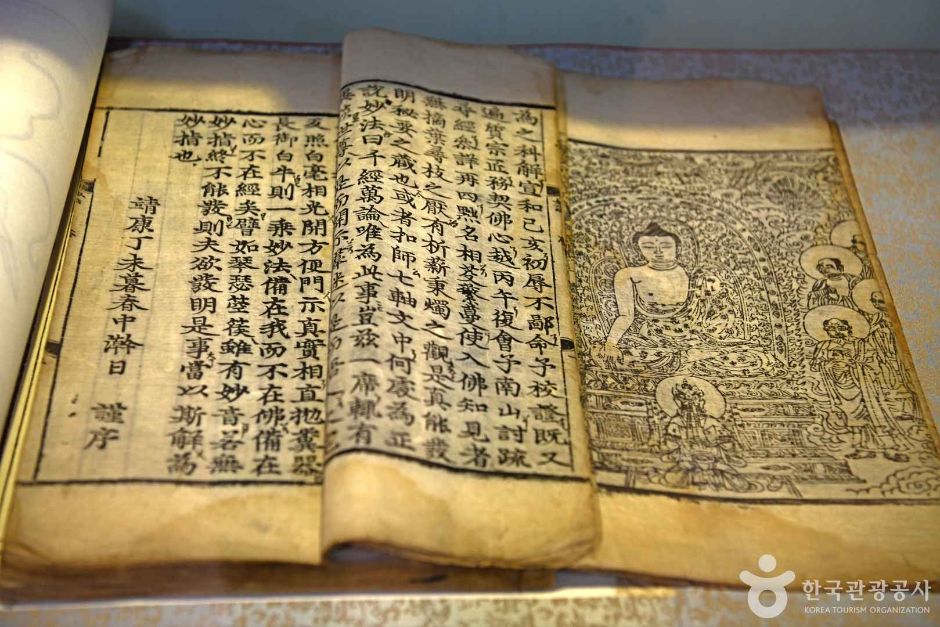 為之科解宣和己亥初辱不鄙命予校證既又
遍質宗匠務契佛心越丙午復會予南山討疏
尋經詳再四名相芟導使入佛知見者
無摘葉尋枝之厭有析薪秉燭之觀是真能發
明秘要之藏也或者扣師七軸文中何處為正
說妙法曰千經萬論唯為此事豈茲一席輒有
世尊以是而開示
友照白毫相光開方便門示真實相直拋糞器
長御白牛則一乘妙法備在我而不在佛備在
心而不在經矣譬如琴瑟箜篌雖有妙音若無
妙指終不能發則夫欲發明是事當以斯解為
妙指也
靖康丁未暮春中澣日 謹序
한국관광공사
KOREA TOURISM ORGANIZATION